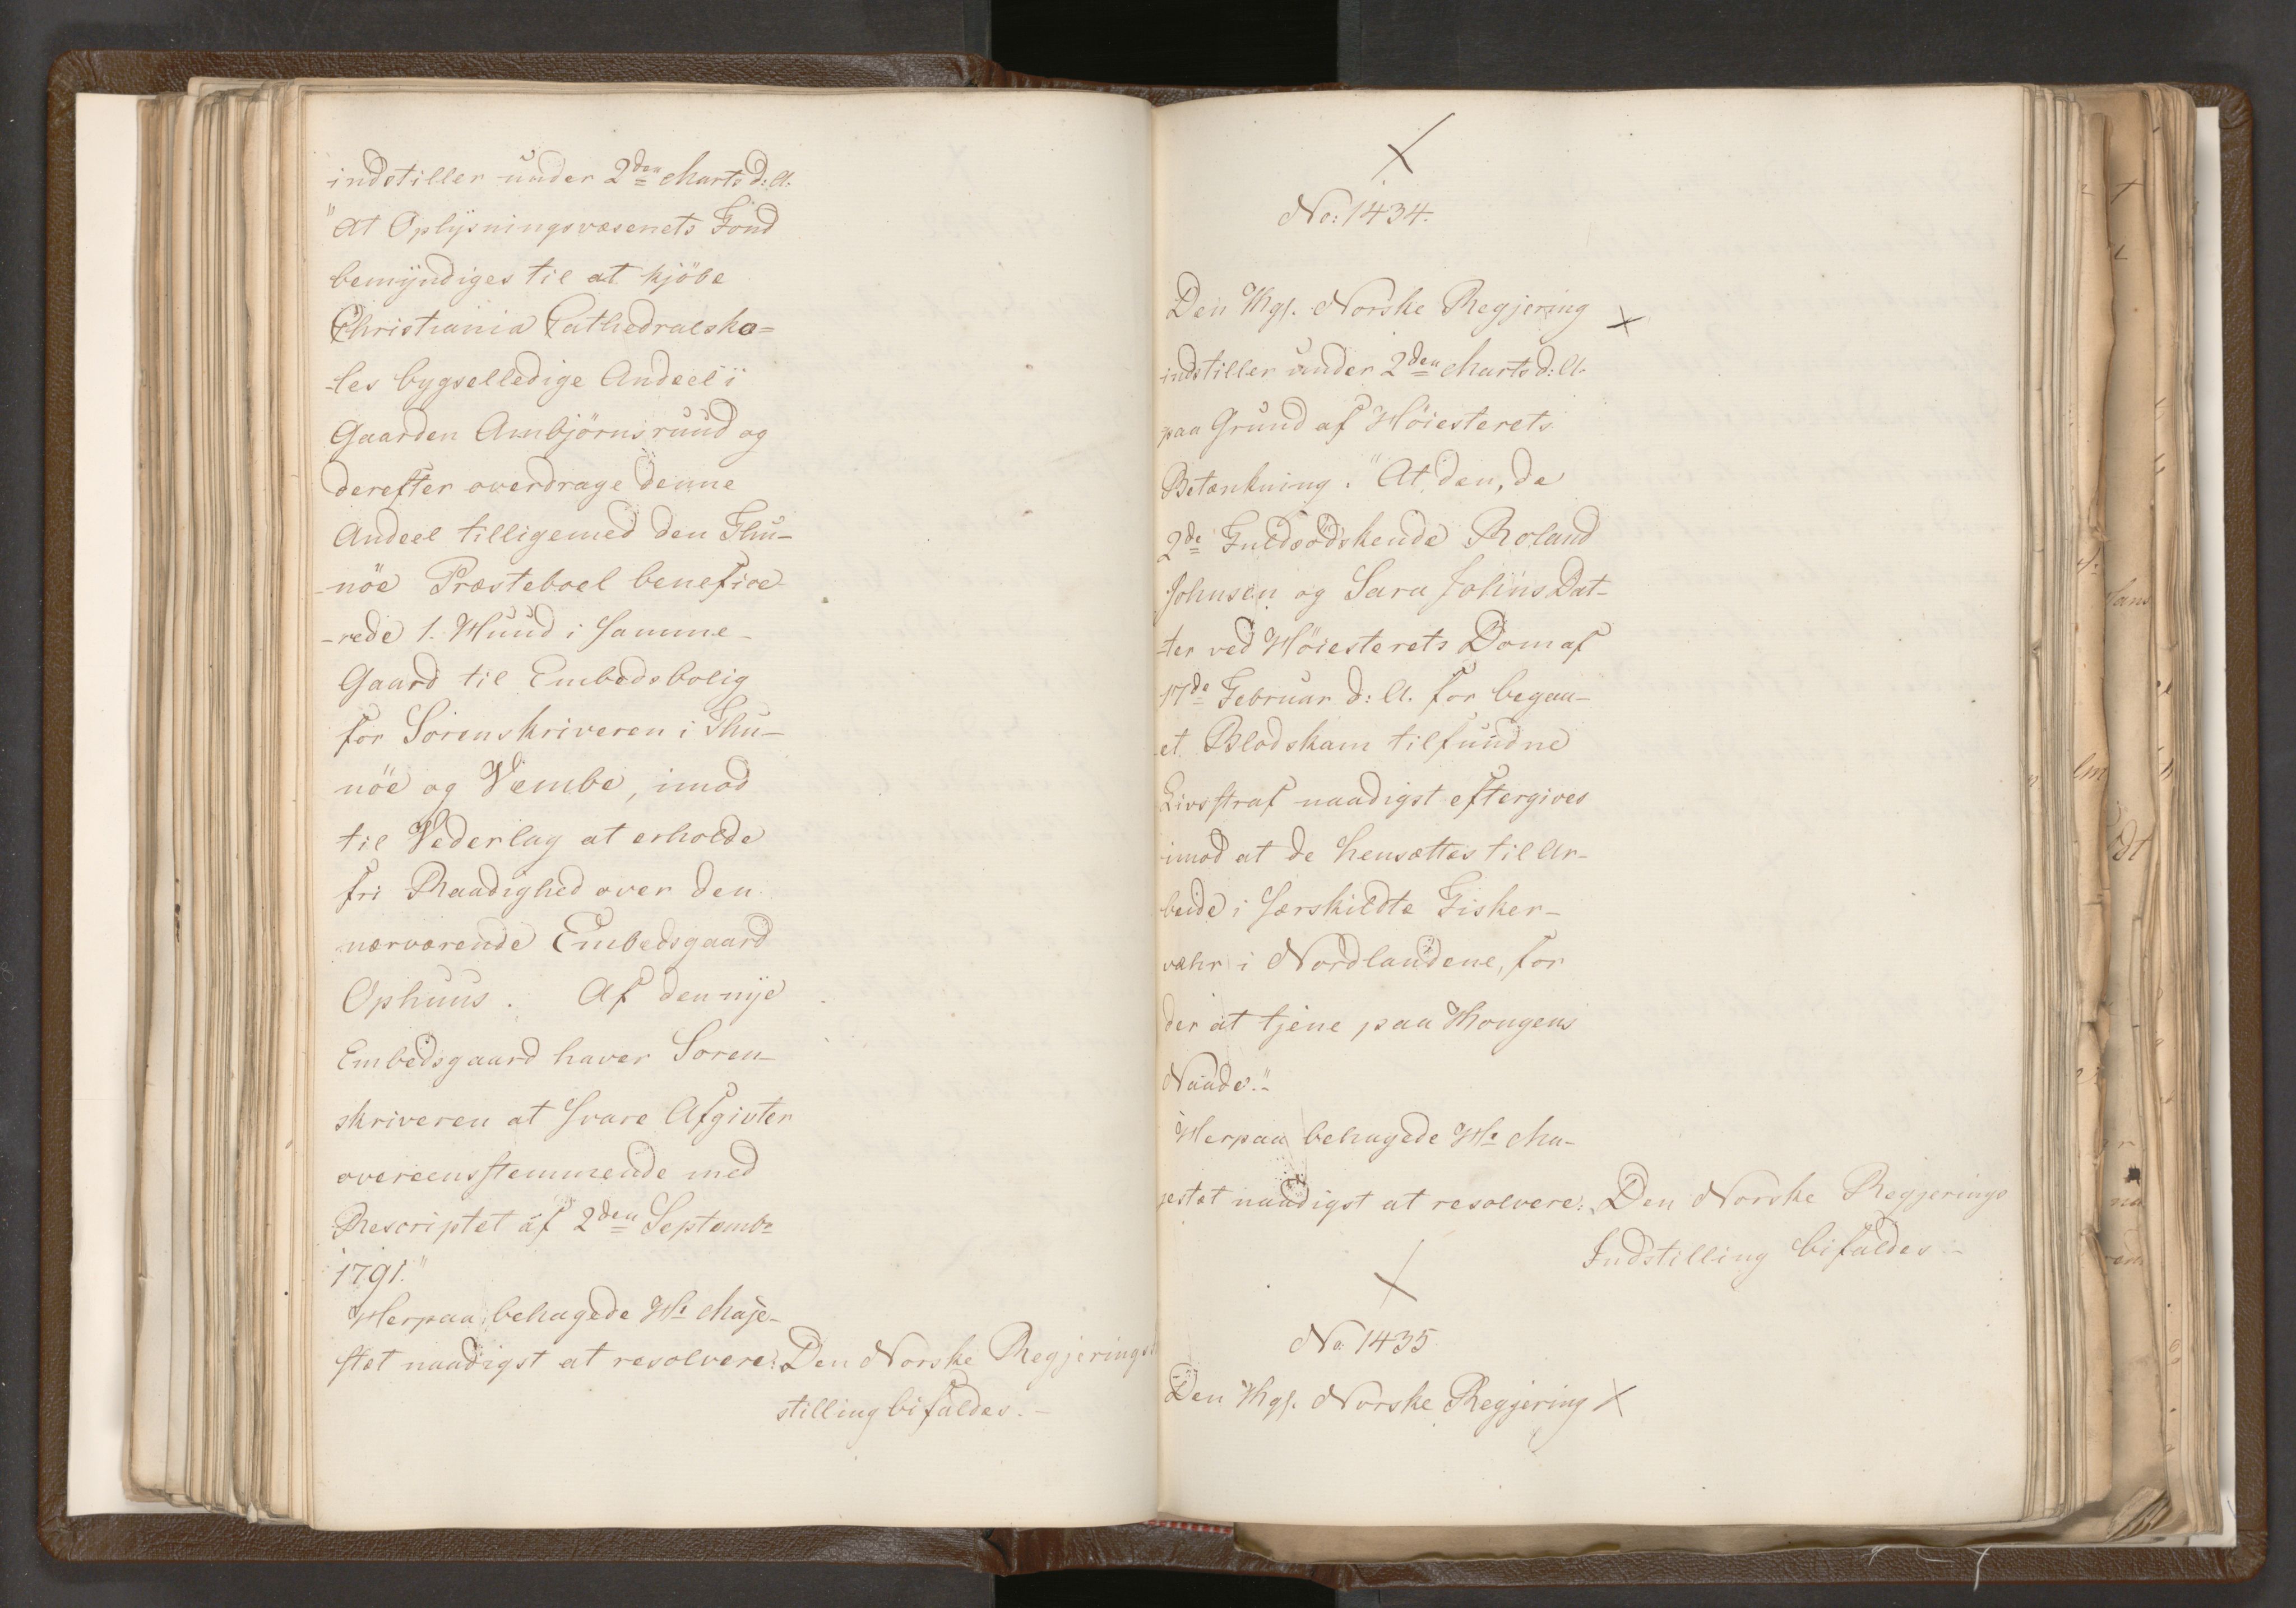 indstiller under 2den Marts d: A:
"At Oplysningsvæsenets Fond
bemyndiges til at kjöbe
Christiania Cathedralsko=
-les bygselledige Andeel i
Gaarden Ambjörnsruud og
derefter overdrage denne
Andeel tilligemed den Thu-
-nöe Præsteboel benefice
-rede 1. Huud i samme
Gaard til Embedsbolig
for Sorenskriveren i Thu-
nöe og Vembe, imod
til Vederlag at erholde
fri Raadighed over den
nærværende Embedsgaard
Ophuus. Af den nye
Embedsgaard haver Soren-
skriveren at svare Afgivter
overeensstemmende med
Rescriptet af 2den Septembr
1791."
Herpaa behagede Hs Maje-
stæt naadigst at resolvere: Den Norske Regjerings
stilling bifaldes.
No: 1434.
Den Kgl. Norske Regjering
indstiller under 2den Marts d: A:
paa Grund af Höiesterets
Betænkning: "At den, de
2de Fuldsödskende Roland
Johnsen og Sara Johns Dat-
-ter ved Höiesterets Dom af
17de Februar d: A. for begaa-
et Blodskam tilfundne
Livsstraf naadigst eftergives
imod at de hensættes til Ar-
beide i særskildte Fisker-
væhr i Nordlandene, for
der at tjene paa Kongens
Naade."
Herpaa behagede Hs Ma-
jestæt naadigst at resolvere: Den Norske Regjerings
Indstilling bifaldes
No 1435
Den Kgl. Norske Regjering